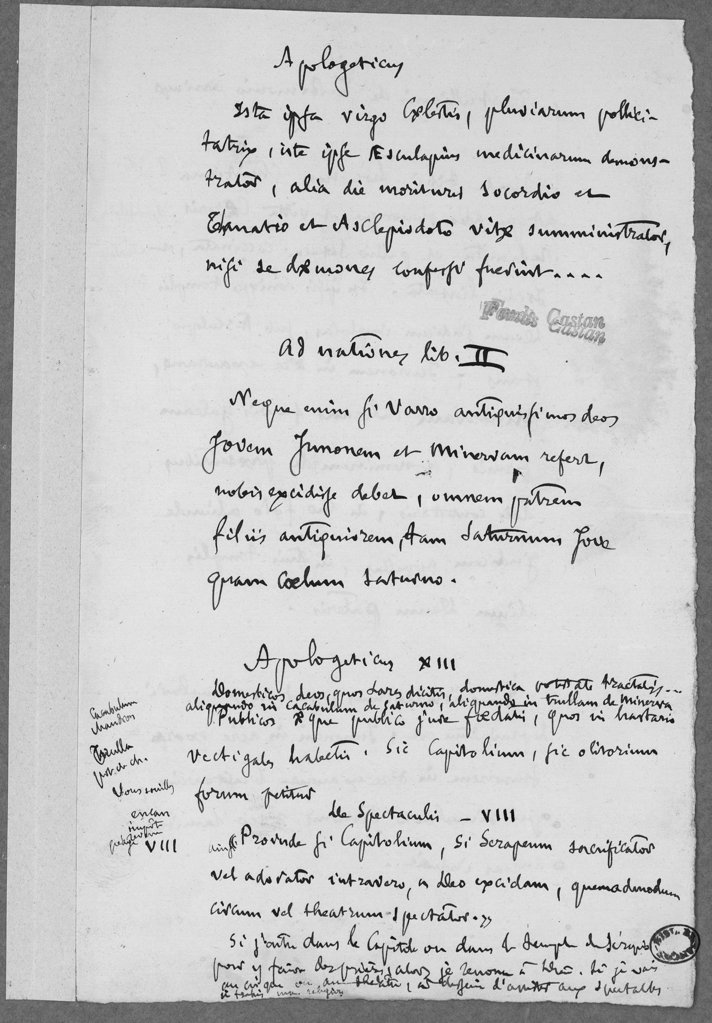 Apologeticus
Ista ipsa virgo Cælestis, pluviarum pollici-
tatrix, iste ipse Æsculapius medicinarum demons-
trator, alia die morituris Socordio et
Thanatio et Asclepiodoto vitæ sumministrator,
nisi se dæmones confessi fuerint....
Fonds Castan
Castan
Ad nationes lib. II
Neque enim si Varro antiquissimos deos
Jovem Junonem et Minervam refert,
nobis excidisse debet, omnem patrem
filiis antiquiorem, tam Saturnum Jove
quam Coelum Saturno.
Apologeticus XIII
Domesticos deos, quos Lares dicitis, domestica potestate tractatis...
aliquando in cacabulum de Saturno, aliquando in trullam de Minerva
Publicos æque publico jure fœdatis, quos in hastario
vectigales habetis. Sic Capitolium, sic olitorium
forum petitur
Cacabulum
chaudron
Trulla
pot de ch.
Vous souillez
encan
VIII
De Spectaculis - VIII
ainsi Proinde si Capitolium, si Serapeum sacrificator
vel adorator intravero, a Deo excidam, quemadmodum
circum vel theatrum spectator.»
Si j'entre dans le Capitole ou dans le temple de Sérapis
pour y faire des prières, alors je renonce à Dieu. Si je vais
au cirque ou au théâtre, aux spectacles